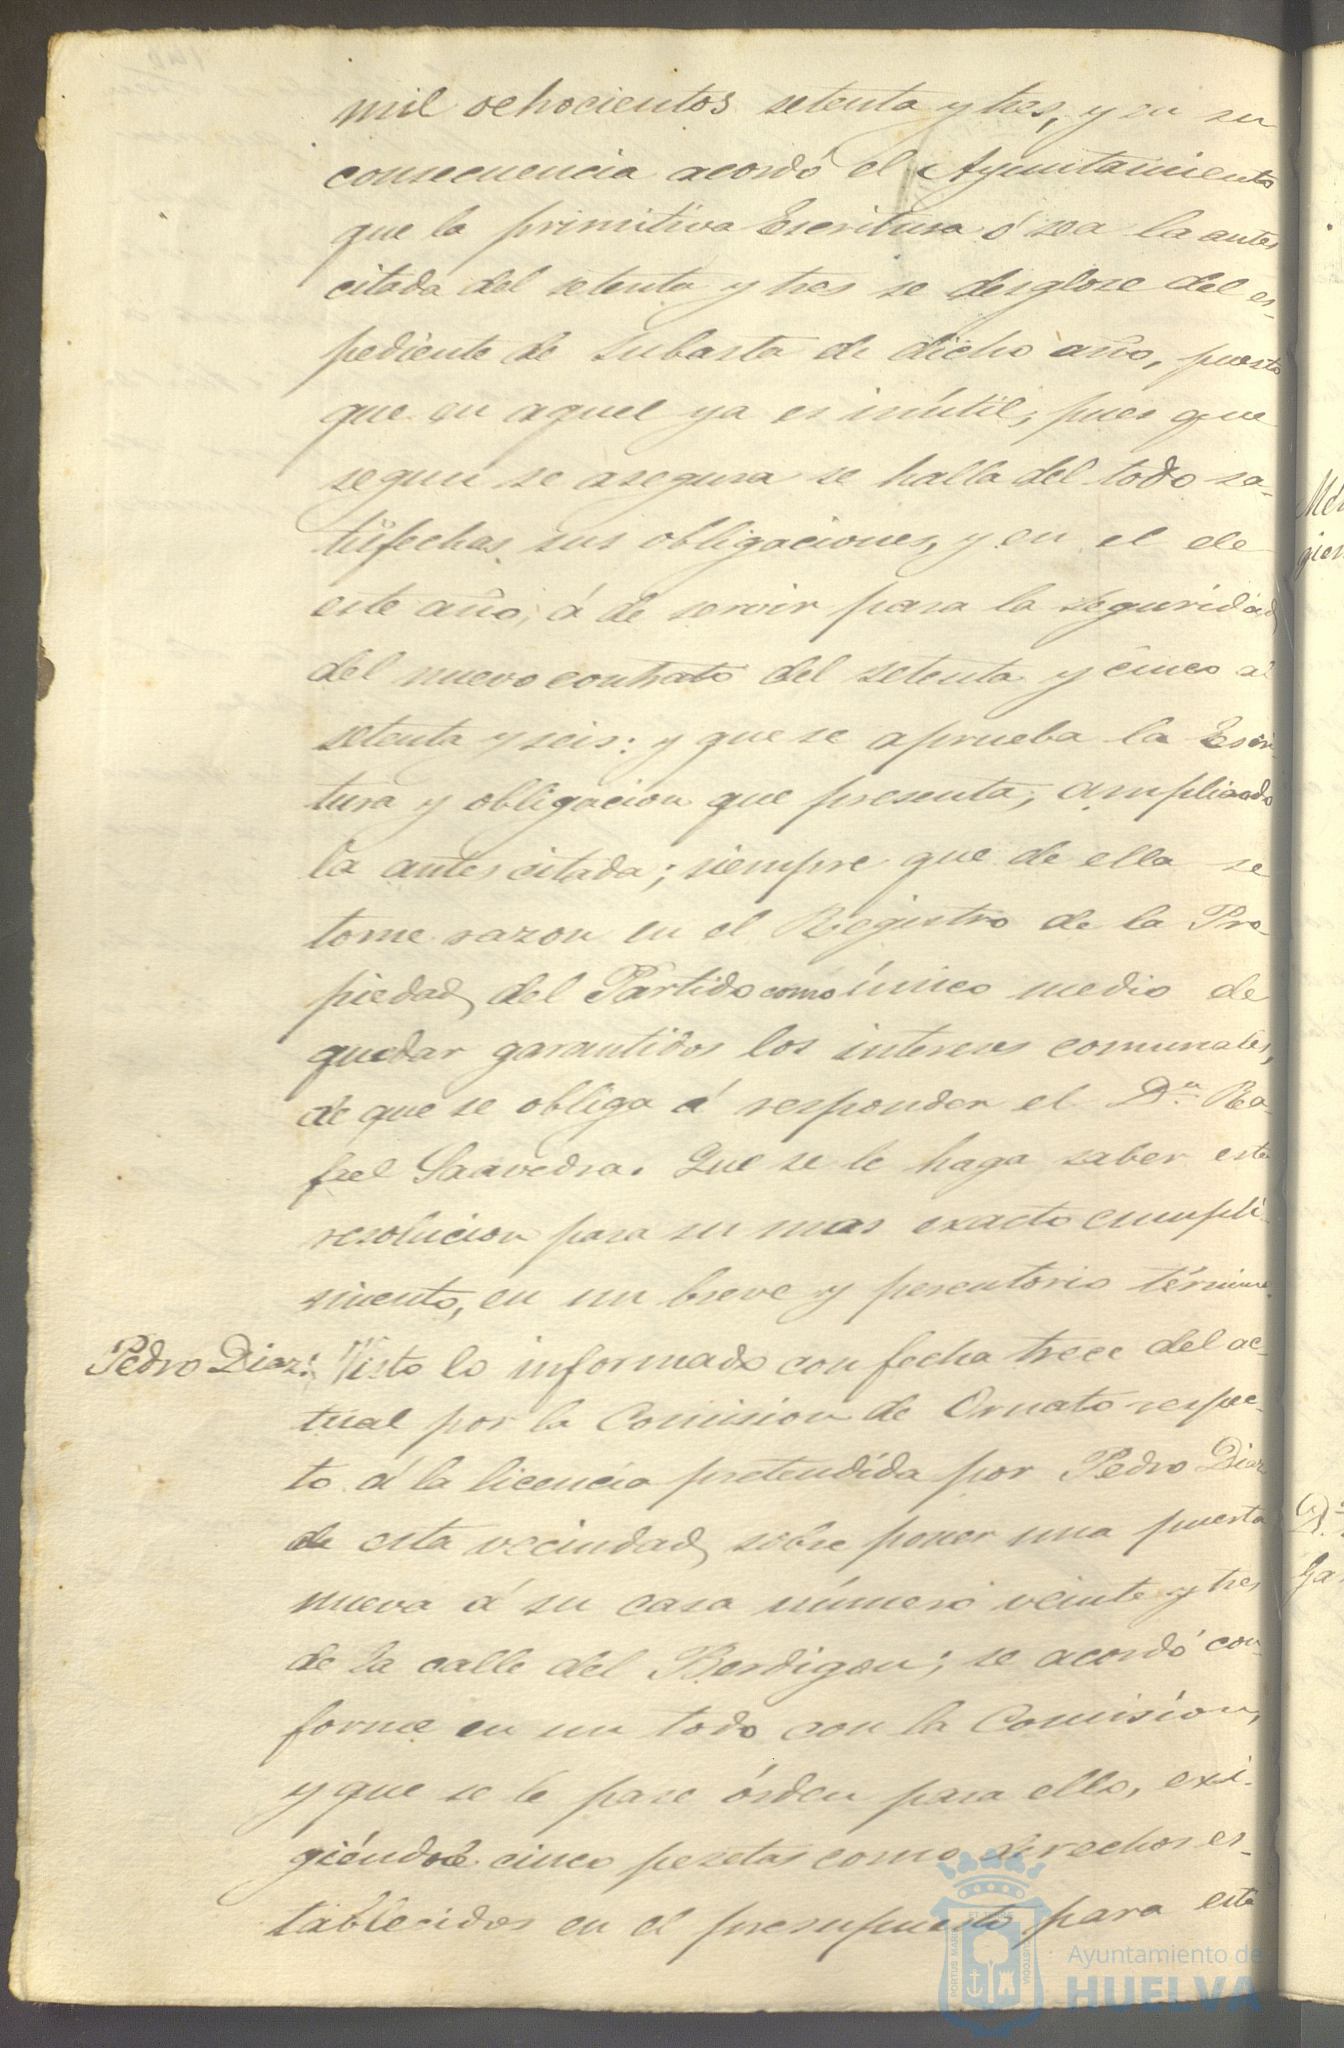 mil ochocientos setenta y tres, y en su
consecuencia acordó el Ayuntamiento
que la primitiva Escritura ó sea la antes
citada del setenta y tres se desglose del es-
pediente de subasta de dicho año, puesto
que en aquel ya es inútil, pues que
segun se asegura se halla del todo sa-
tisfechas sus obligaciones, y en el de
este año, á de servir para la seguridad
del nuevo contrato del setenta y cinco al
setenta y seis: y que se aprueba la Escri-
tura y obligacion que presenta, ampliando
la antes citada; siempre que de ella se
tome razon en el Registro de la Pro-
piedad del Partido como único medio de
quedar garantidos los intereses comunales,
de que se obliga á responder el Dn. Ra-
fael Saavedra. Que se le haga saber esta
resolucion para su mas exacto cumpli-
miento, en un breve y perentorio término.
Pedro Diaz: Visto lo informado con fecha trece del ac-
tual por la Comision de Ornato respec-
to á la licencia pretendida por Pedro Diaz
de esta vecindad, sobre poner una puerta
nueva á su casa número veinte y tres
de la calle del Berdigon; se acordó con-
forme en un todo con la Comision,
y que se le pase órden para ello, exi-
giéndole cinco pesetas como derechos es-
tablecidos en el presupuesto para este
Ayuntamiento de
HUELVA